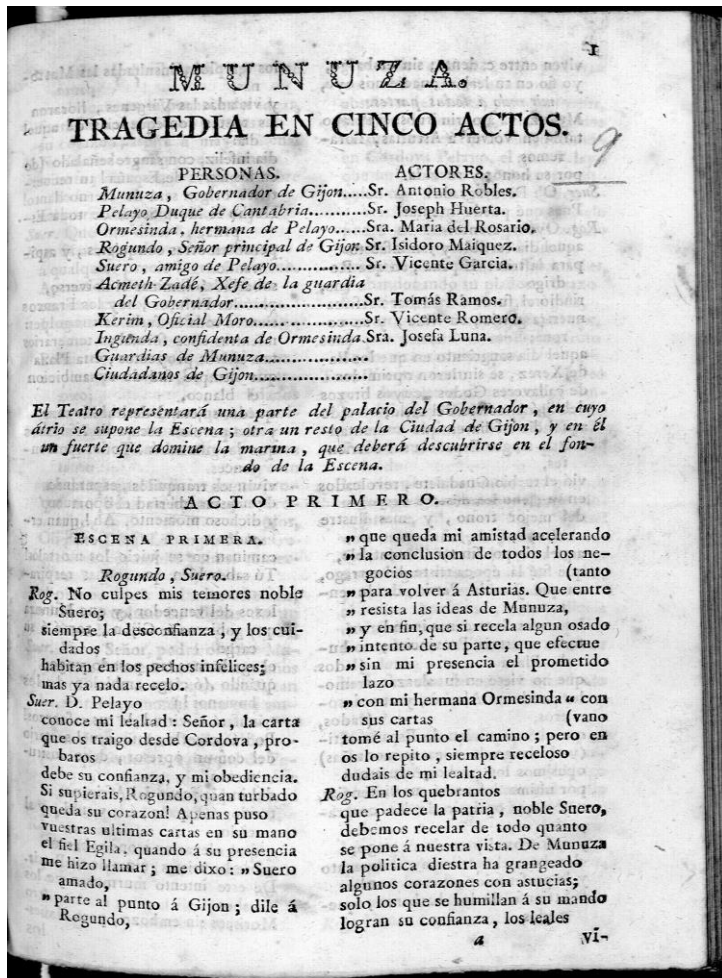 1
MUNUZA.
TRAGEDIA EN CINCO ACTOS.
9
PERSONAS. ACTORES.
Munuza, Gobernador de Gijon.....Sr. Antonio Robles.
Pelayo Duque de Cantabria..........Sr. Joseph Huerta.
Ormesinda, hermana de Pelayo.....Sra. Maria del Rosario.
Rogundo, Señor principal de Gijon Sr. Isidoro Maiquez.
Suero, amigo de Pelayo...............Sr. Vicente Garcia.
Acmeth-Zadé, Xefe de la guardia
del Gobernador.......................Sr. Tomás Ramos.
Kerim, Oficial Moro.....................Sr. Vicente Romero.
Ingunda, confidenta de Ormesinda.Sra. Josefa Luna.
Guardias de Munuza...................
Ciudadanos de Gijon....................
El Teatro representará una parte del palacio del Gobernador, en cuyo
átrio se supone la Escena; otra un resto de la Ciudad de Gijon, y en él
un fuerte que domine la marina, que deberá descubrirse en el fon-
do de la Escena.
ACTO PRIMERO.
ESCENA PRIMERA.
Rogundo, Suero.
Rog. No culpes mis temores noble
Suero;
siempre la desconfianza, y los cui-
dados
habitan en los pechos infelices;
mas ya nada recelo.
Suer. D. Pelayo
conoce mi lealtad: Señor, la carta
que os traigo desde Cordova, pro-
baros
debe su confianza, y mi obediencia.
Si supierais, Rogundo, quan turbado
queda su corazon! Apenas puso
vuestras ultimas cartas en su mano
el fiel Egila, quando á su presencia
me hizo llamar; me dixo: „Suero
amado,
„parte al punto á Gijon; dile á
Rogundo,
„que queda mi amistad acelerando
„la conclusion de todos los ne-
gocios (tanto
„para volver á Asturias. Que entre
„resista las ideas de Munuza,
„y en fin, que si recela algun osado
„intento de su parte, que efectue
„sin mi presencia el prometido
lazo
„con mi hermana Ormesinda“ con
sus cartas (vano
tomé al punto el camino; pero en
os lo repito, siempre receloso
dudais de mi lealtad.
Rog. En los quebrantos
que padece la patria, noble Suero,
debemos recelar de todo quanto
se pone á nuestra vista. De Munuza
la politica diestra ha grangeado
algunos corazones con astucias;
solo los que se humillan á su mando
logran su confianza, los leales
a vi-